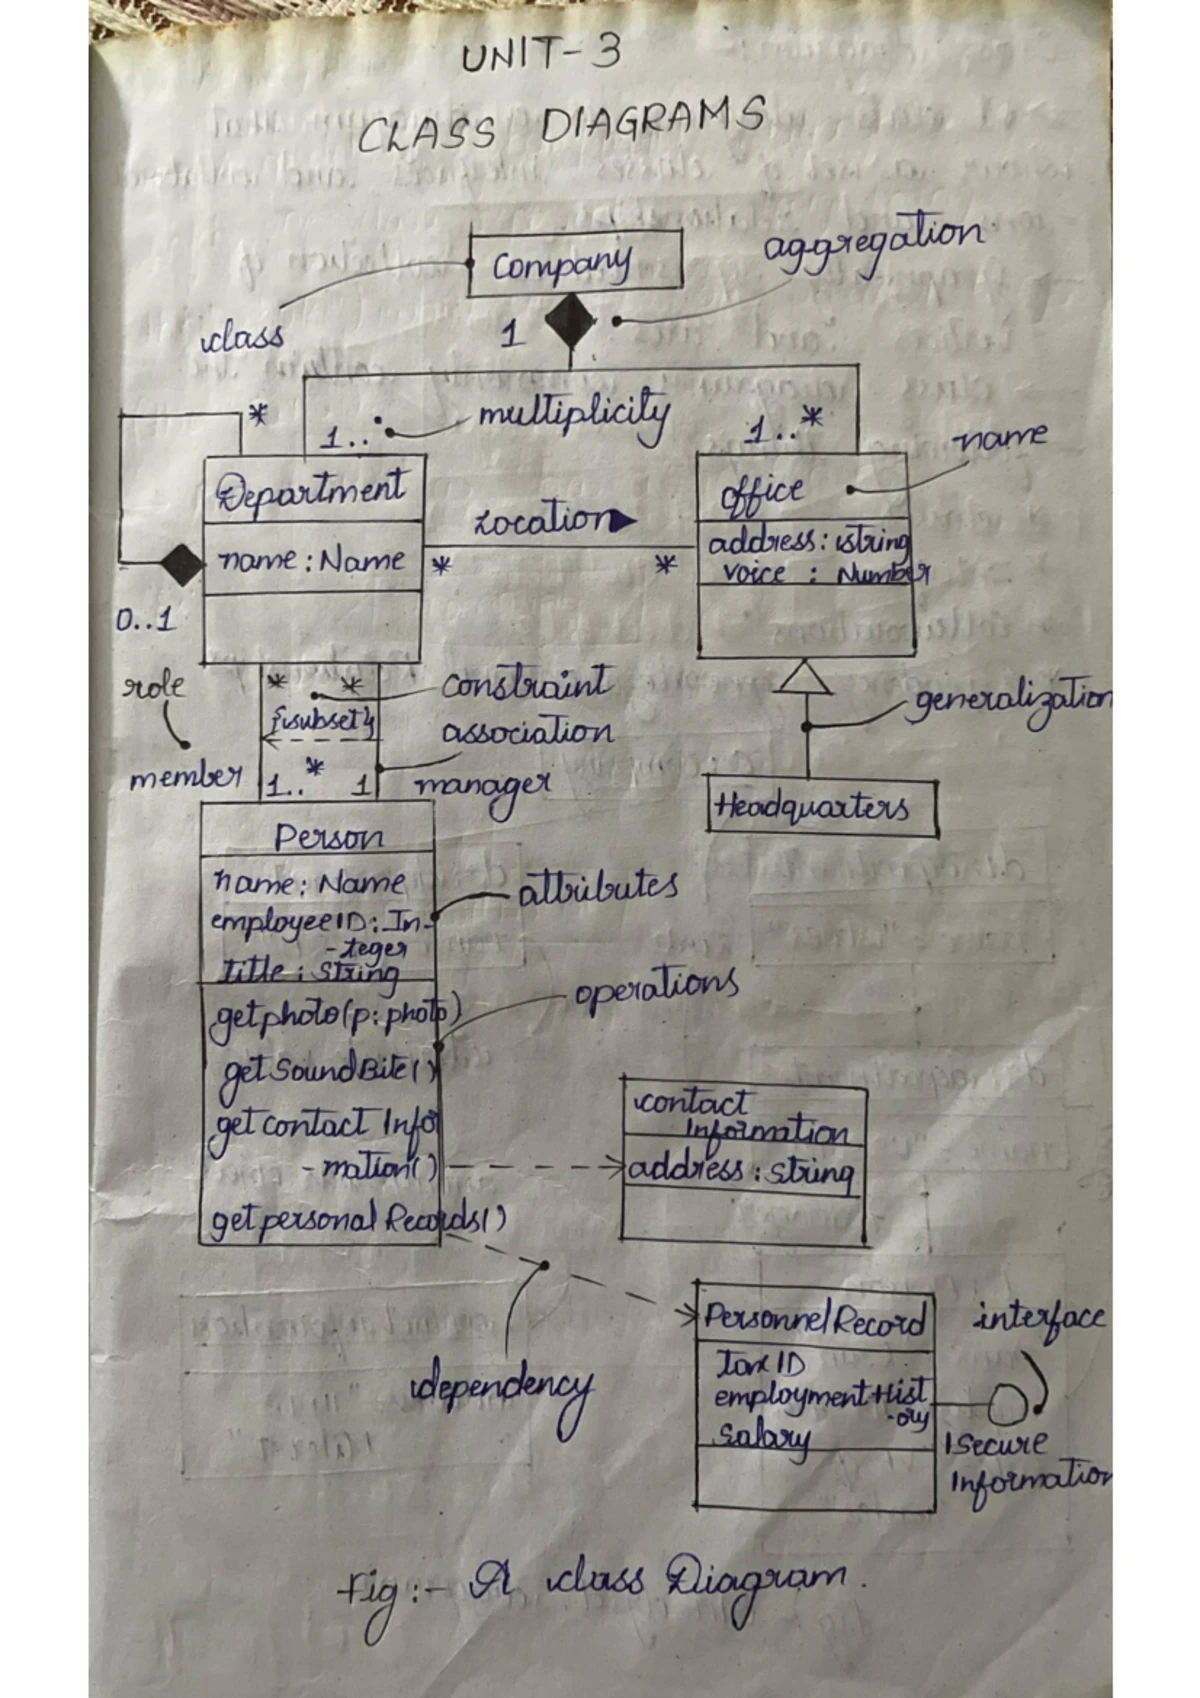 UNIT-3
CLASS DIAGRAMS
Company
aggregation
class
1
*
1..*
multiplicity
1..*
name
Department
Location
office
name : Name
*
*
address : string
voice : Number
0..1
role
*
*
constraint
{subset}
association
generalization
member
1..*
1
manager
Headquarters
Person
name : Name
attributes
employeeID : In-
-teger
title : String
operations
getphoto(p:photo)
getSoundBite()
getcontact Infor
-mation()
getpersonal Records()
contact
Information
address : string
dependency
PersonnelRecord
interface
tax ID
employmentHist
-ory
salary
ISecure
Information
Fig :- A class Diagram.